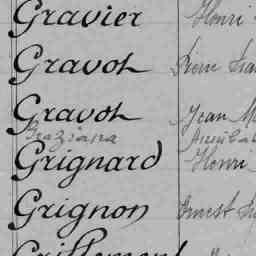 Gravier Henri
Gravot Pierre
Gravot Jean M
Graziana Annibal
Grignard Henri
Grignon Ernest